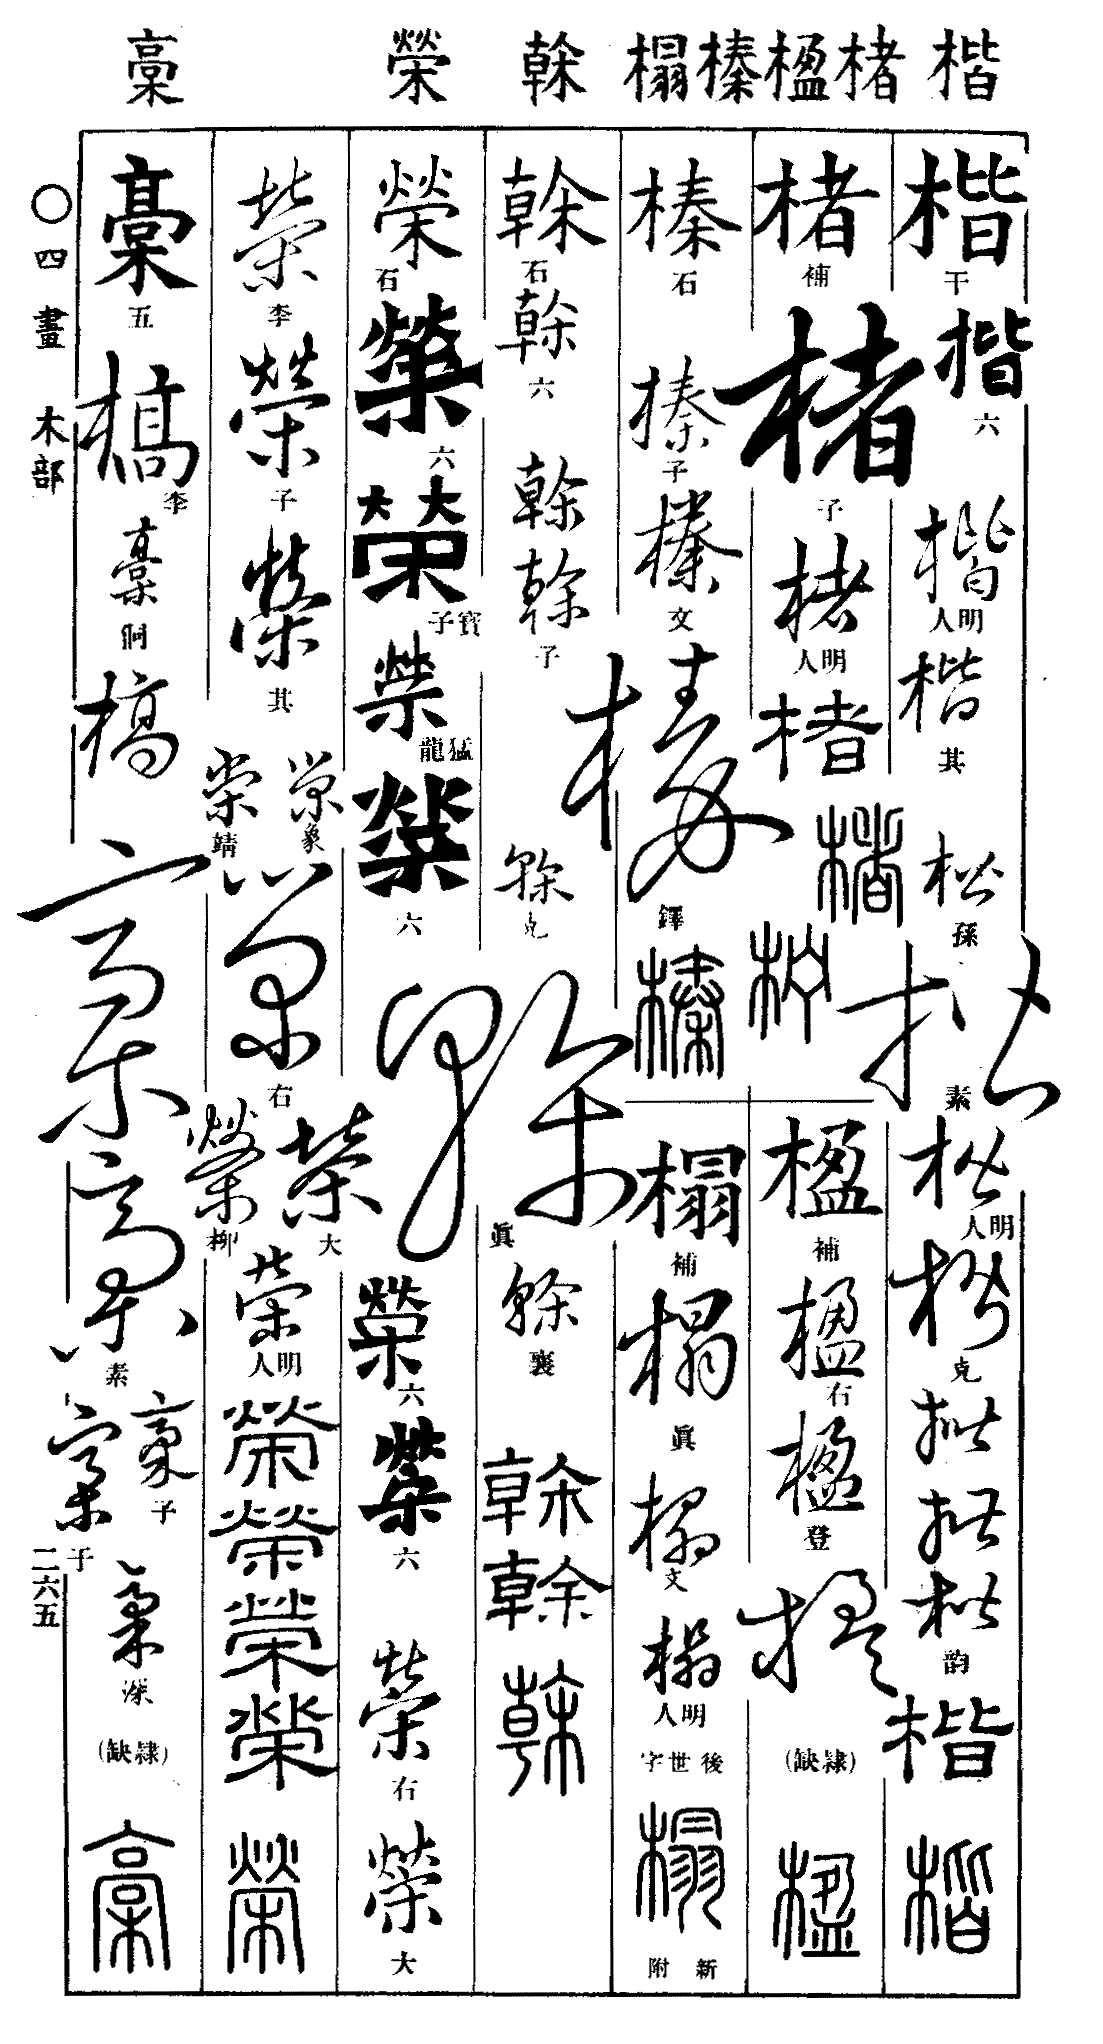 楷 楮 楹 榛 榻 榦 榮 槀
楷 干 楷 六 楷 明人 楷 其 楷 孫 楷 素 楷 明人 楷 克 楷 楷 楷 韵 楷 楷
楮 補 楮 子 楮 明人 楮 楮 楮
楹 補 楹 右 楹 登 楹 (隷缺) 楹
榛 石 榛 子 榛 文 榛 鐸 榛
榻 補 榻 眞 榻 文 榻 明人 後世字 榻 新附
榦 石 榦 六 榦 榦 子 榦 克 榦 眞 榦 襄 榦 榦 榦
榮 石 榮 六 榮 寶子 榮 猛龍 榮 六 榮 六 榮 六 榮 右 榮 大
榮 李 榮 子 榮 其 榮 象 榮 靖 榮 右 榮 大 榮 柳 榮 明人 榮 榮 榮 榮 榮
槀 五 槁 李 槀 侗 槁 槀 槀 素 槀 子 槀 子 槀 深 (隷缺) 槀
〇四畫 木部 二六五